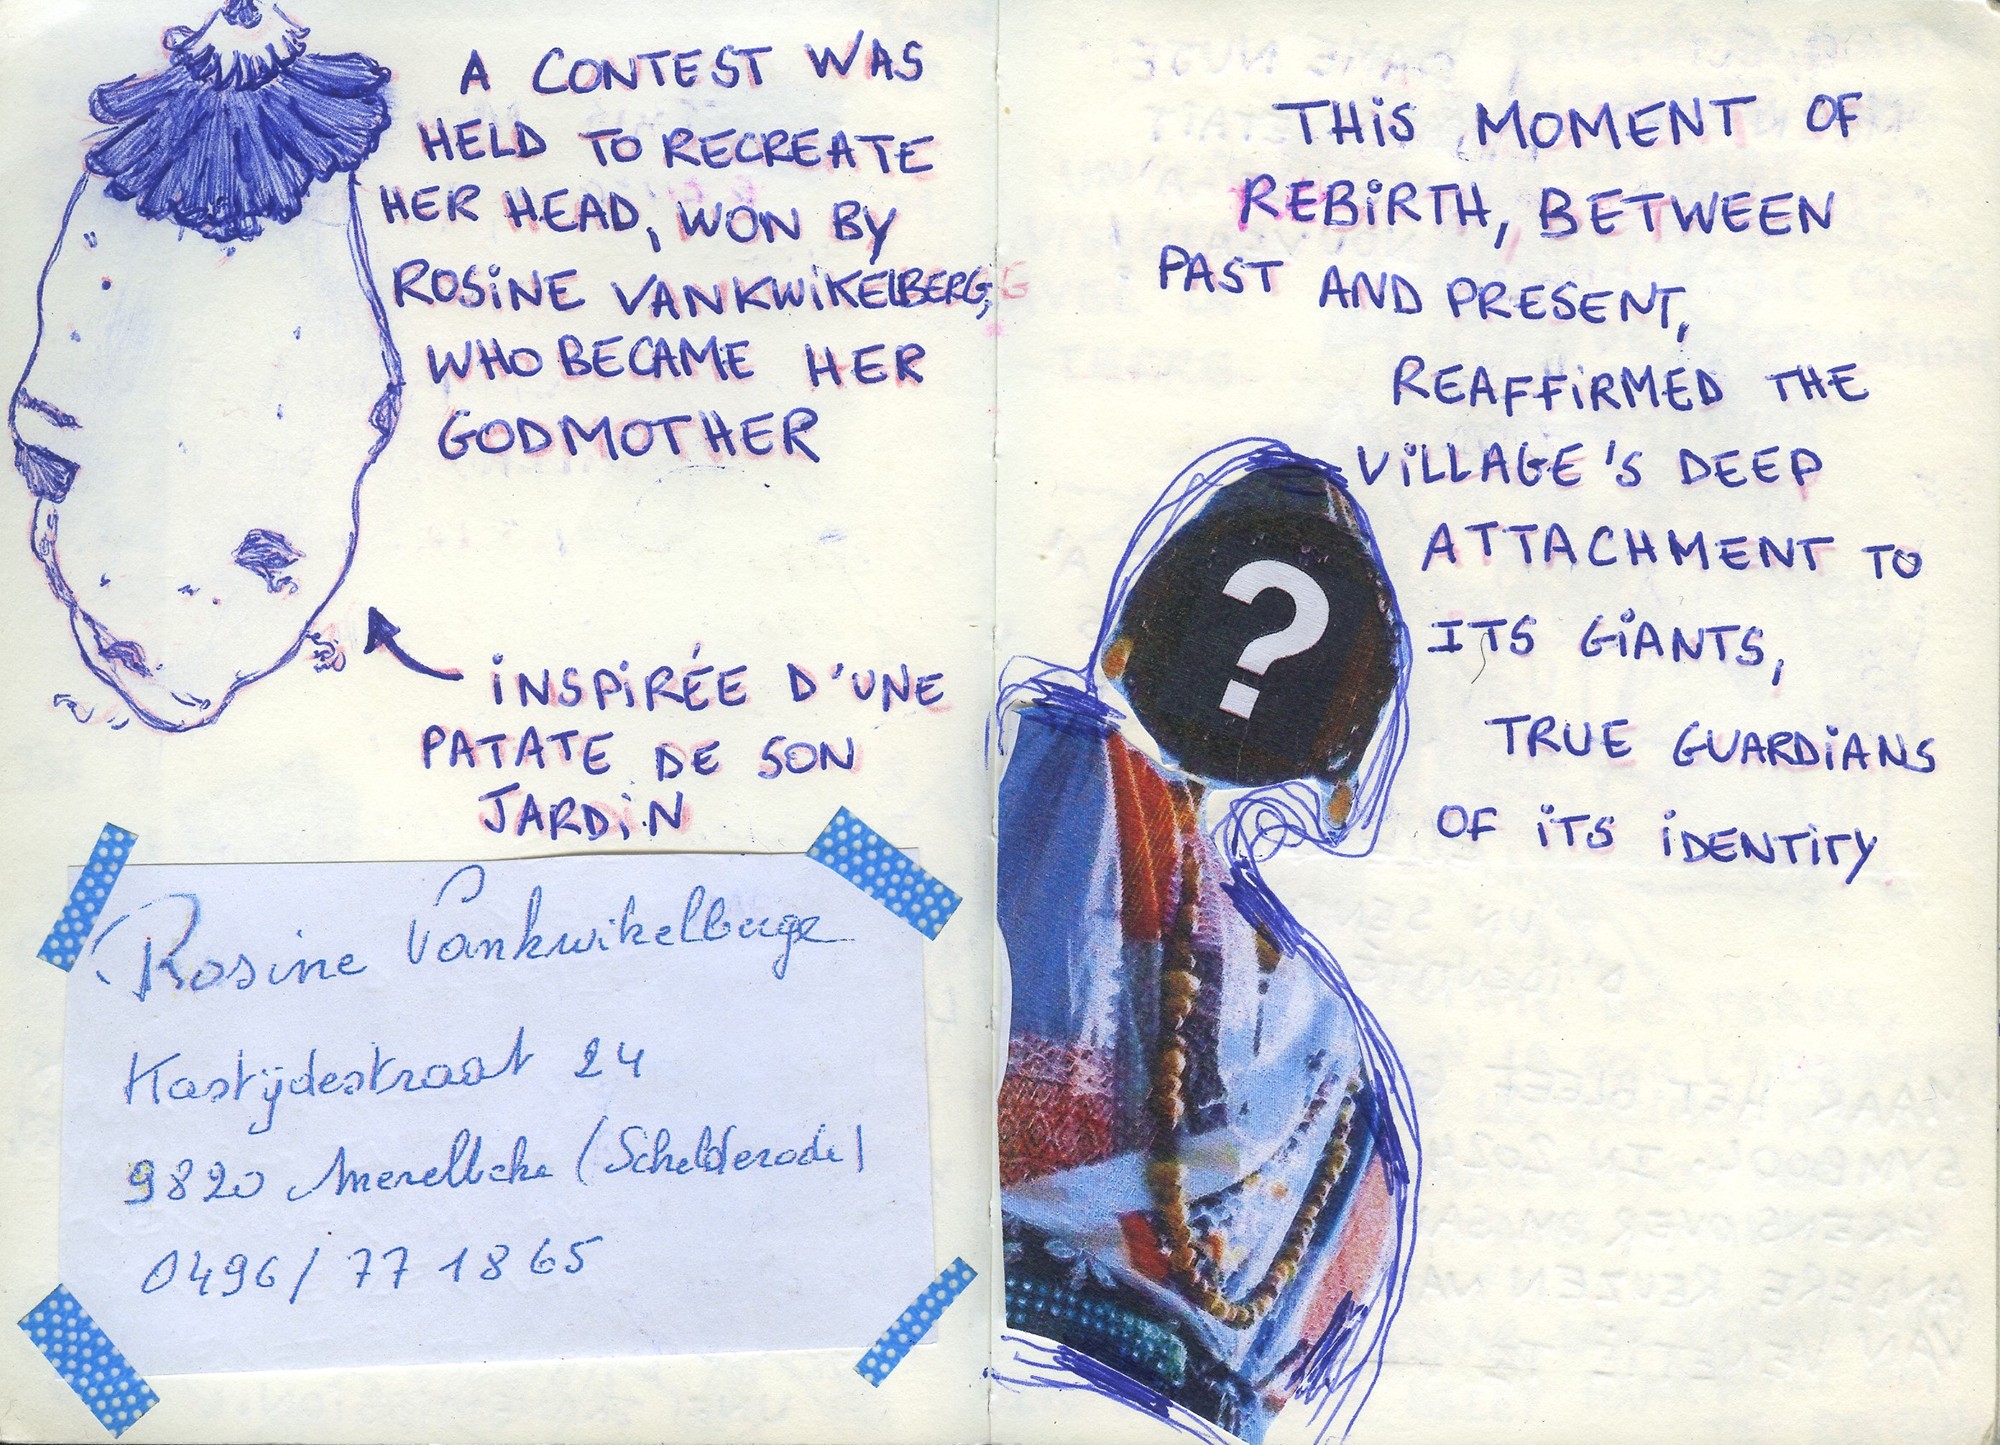 A CONTEST WAS
HELD TO RECREATE
HER HEAD, WON BY
ROSINE VANKWIKELBERG,
WHO BECAME HER
GODMOTHER
INSPIRÉE D'UNE
PATATE DE SON
JARDIN
Rosine Vankwikelberge
Kastijdestraat 24
9820 Merelbeke (Schelderode)
0496/ 77 18 65
THIS MOMENT OF
REBIRTH, BETWEEN
PAST AND PRESENT,
REAFFIRMED THE
VILLAGE'S DEEP
ATTACHMENT TO
ITS GIANTS,
TRUE GUARDIANS
OF ITS IDENTITY
?